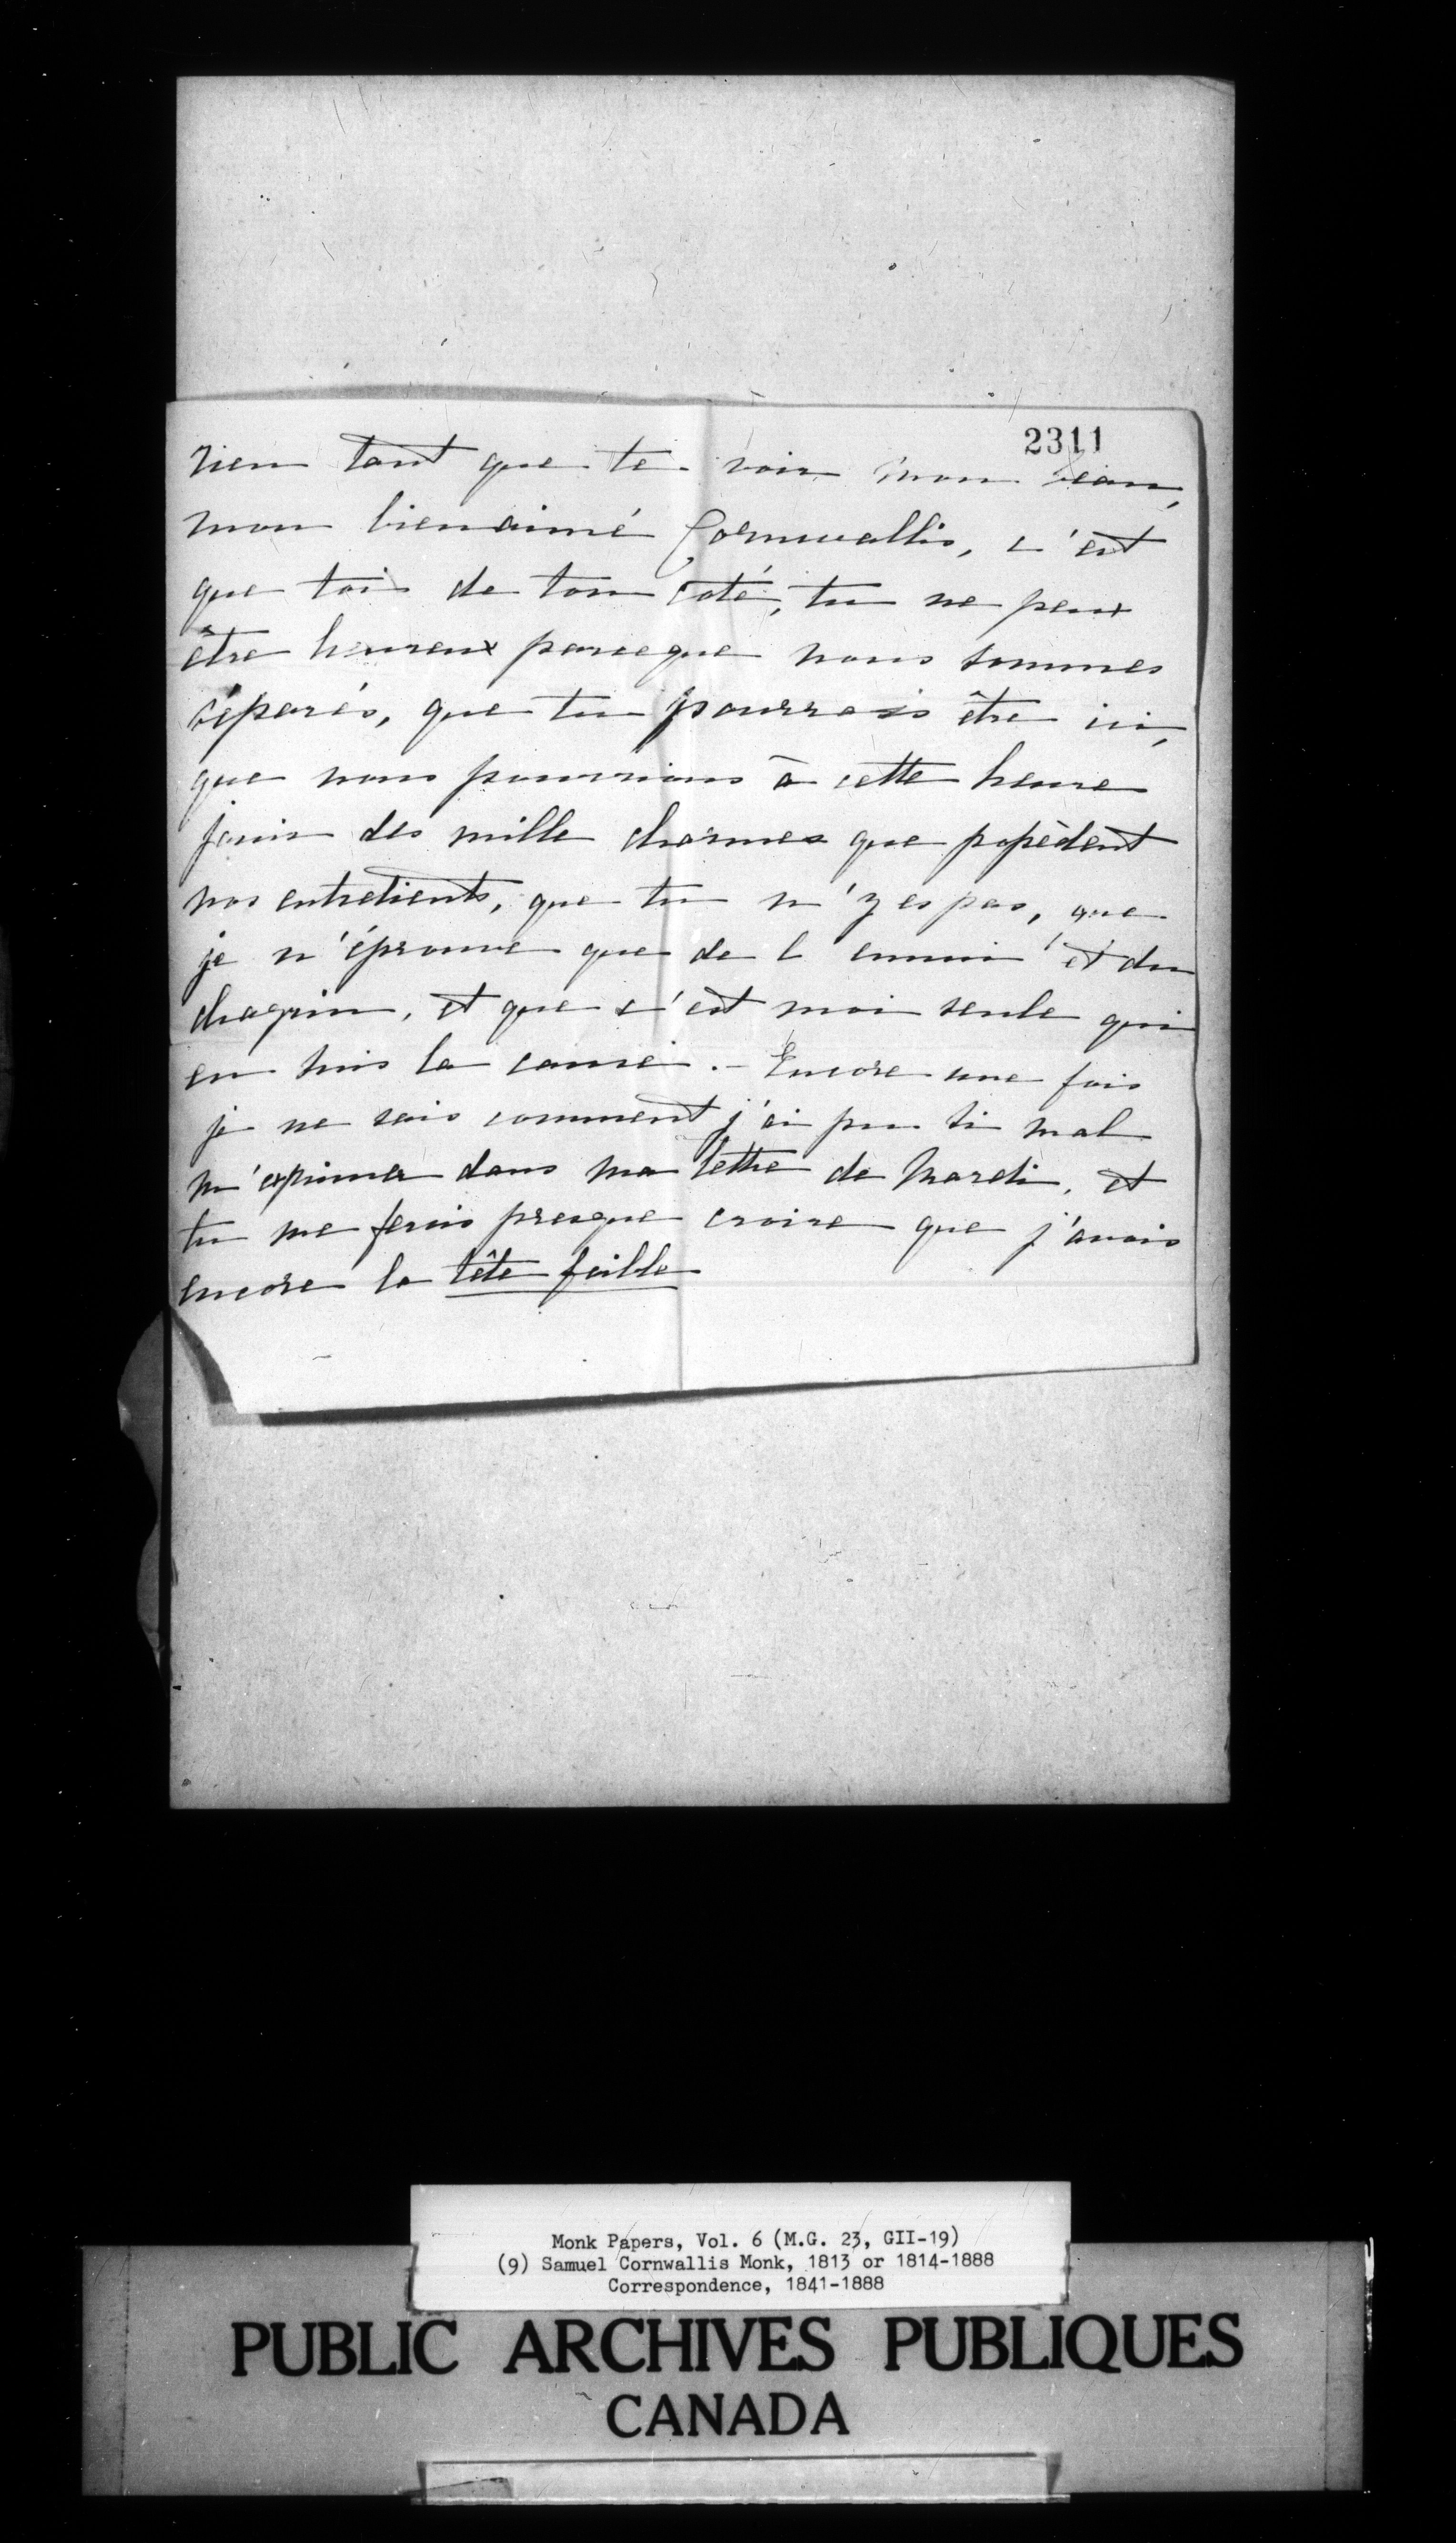 2311
rien tant que te voir mon beau,
mon bienaimé Cornwallis, c'est
que toi de ton coté, tu ne peux
être heureux parceque nous sommes
séparés, que tu pourrais être ici,
que nous pourrions à cette heure
jouir des mille charmes que possèdent
nos entretients, que tu n'y es pas, que
je n'éprouve que de l'ennui et du
chagrin, et que c'est moi seule qui
en suis la cause. - Encore une fois
je ne sais comment j'ai pu si mal
m'exprimer dans ma lettre de Mardi, et
tu me ferais presque croire que j'avais
encore la tête faible
Monk Papers, Vol. 6 (M.G. 23, GII-19)
(9) Samuel Cornwallis Monk, 1813 or 1814-1888
Correspondence, 1841-1888
PUBLIC ARCHIVES PUBLIQUES
CANADA